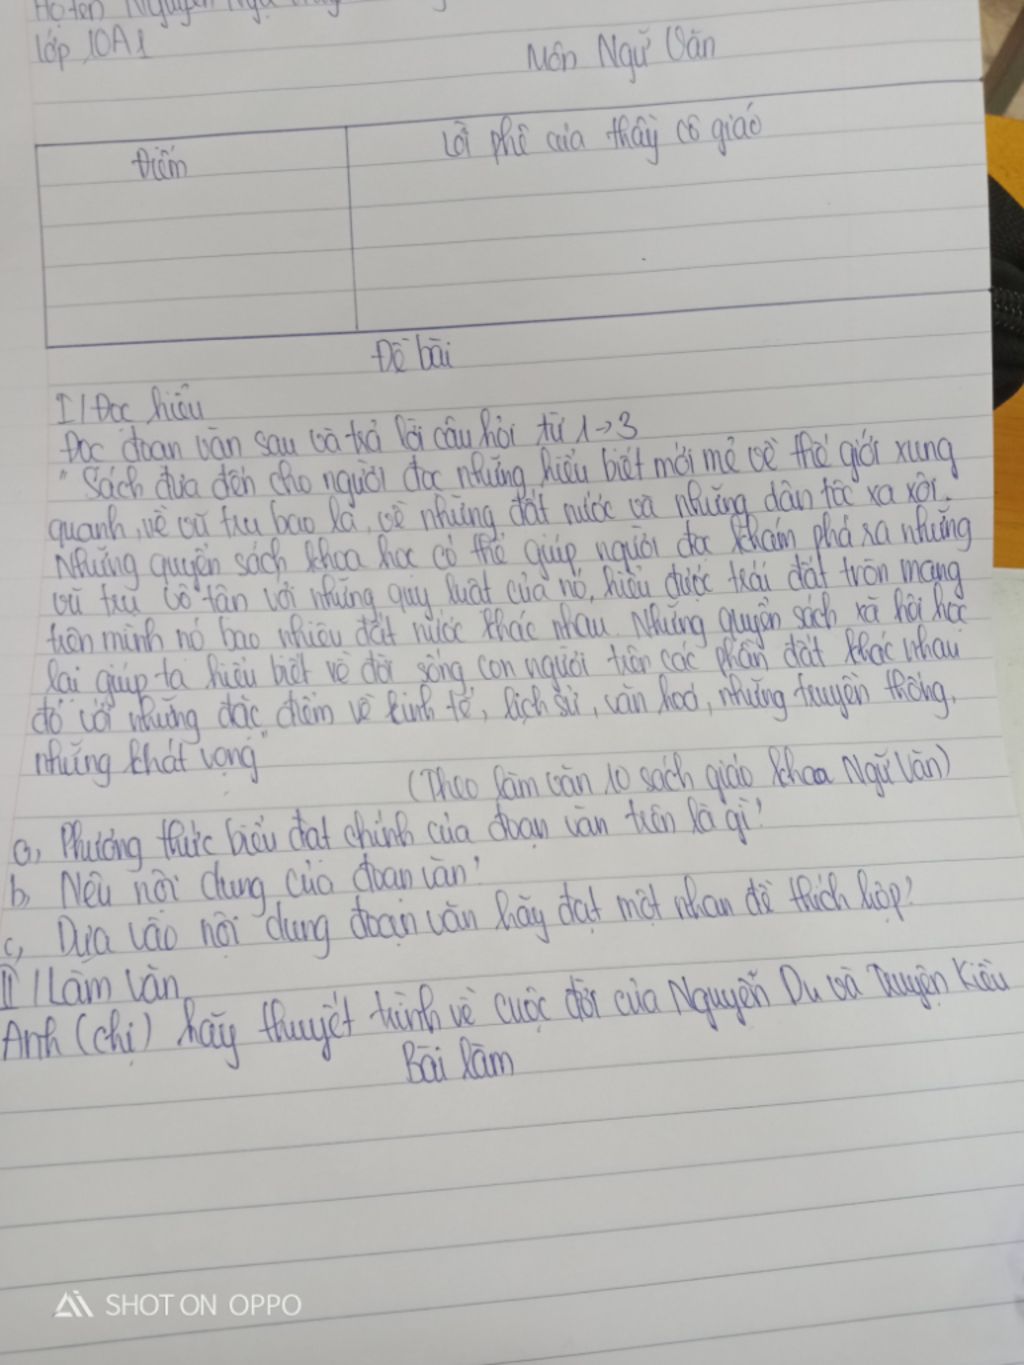 Họ tên Nguyễn
Lớp 10A1
Môn Ngữ Văn
Điểm
Lời phê của thầy cô giáo
Đề bài
I/ Đọc hiểu
Đọc đoạn văn sau và trả lời câu hỏi từ 1→3
"Sách đưa đến cho người đọc những hiểu biết mới mẻ về thế giới xung
quanh, về vũ trụ bao la, về những đất nước và những dân tộc xa xôi.
Những quyển sách khoa học có thể giúp người đọc khám phá ra những
vũ trũ vô tận với những quy luật của nó, hiểu được trái đất tròn mang
trên mình nó bao nhiêu đất nước khác nhau. Những quyển sách xã hội học
lại giúp ta hiểu biết về đời sống con người trên các phần đất khác nhau
đó với những đặc điểm về kinh tế, lịch sử, văn hoá, những truyền thống,
những khát vọng"
(Theo làm văn 10 sách giáo khoa Ngữ Văn)
a, Phương thức biểu đạt chính của đoạn văn trên là gì?
b, Nêu nội dung của đoạn văn?
c, Dựa vào nội dung đoạn văn hãy đạt một nhan đề thích hợp?
II/ Làm văn
Anh (chị) hãy thuyết trình về cuộc đời của Nguyễn Du và Truyện Kiều
Bài làm
SHOT ON OPPO